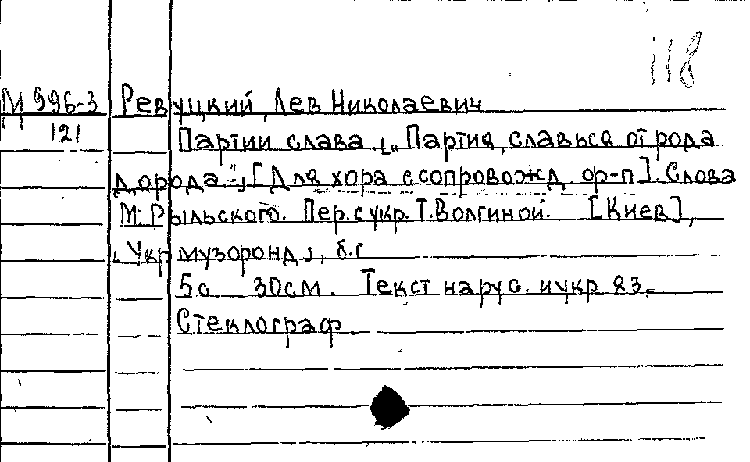 118
М 996-3 Ревуцкий, Лев Николаевич
121
Партии слава. „Партия, славься от рода
до рода..." [Для хора с сопровожд. ф-п]. Слова
М. Рыльского. Пер. с укр. Т. Волгиной. [Киев],
„Укрмузфонд", б.г.
5с 30см. Текст на рус. и укр. яз.
Стеклограф.